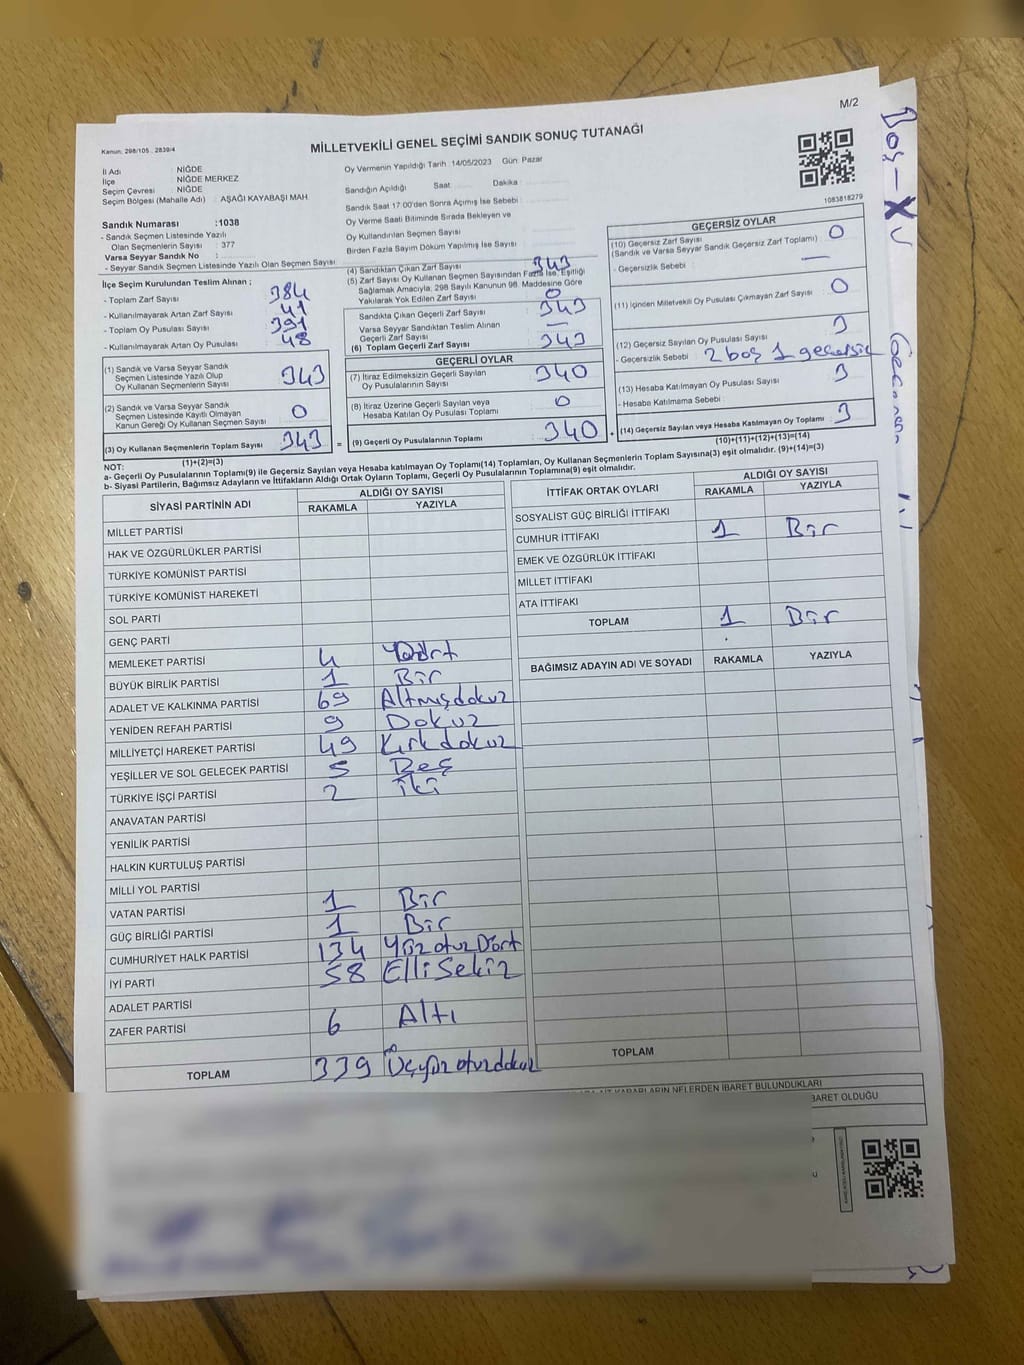 M/2
Kanun: 298/105 , 2839/4
MİLLETVEKİLİ GENEL SEÇİMİ SANDIK SONUÇ TUTANAĞI
İl Adı : NİĞDE
İlçe : NİĞDE MERKEZ
Seçim Çevresi : NİĞDE
Seçim Bölgesi (Mahalle Adı) : AŞAĞI KAYABAŞI MAH.
Sandık Numarası :1038
- Sandık Seçmen Listesinde Yazılı
Olan Seçmenlerin Sayısı : 377
Varsa Seyyar Sandık No :
- Seyyar Sandık Seçmen Listesinde Yazılı Olan Seçmen Sayısı
Oy Vermenin Yapıldığı Tarih :14/05/2023 Gün: Pazar
Sandığın Açıldığı Saat Dakika :
Sandık Saat 17:00'den Sonra Açımış İse Sebebi :
Oy Verme Saati Bitiminde Sırada Bekleyen ve
Oy Kullandırılan Seçmen Sayısı
Birden Fazla Sayım Döküm Yapılmış İse Sayısı
1083818279
İlçe Seçim Kurulundan Teslim Alınan ;
- Toplam Zarf Sayısı 384
- Kullanılmayarak Artan Zarf Sayısı 41
- Toplam Oy Pusulası Sayısı 391
- Kullanılmayarak Artan Oy Pusulası 48
(1) Sandık ve Varsa Seyyar Sandık
Seçmen Listesinde Yazılı Olup
Oy Kullanan Seçmenlerin Sayısı 343
(2) Sandık ve Varsa Seyyar Sandık
Seçmen Listesinde Kayıtlı Olmayan
Kanun Gereği Oy Kullanan Seçmen Sayısı 0
(3) Oy Kullanan Seçmenlerin Toplam Sayısı 343 =
(1)+(2)=(3)
(4) Sandıktan Çıkan Zarf Sayısı 343
(5) Zarf Sayısı Oy Kullanan Seçmen Sayısından Fazla İse, Eşitliği
Sağlamak Amacıyla; 298 Sayılı Kanunun 98. Maddesine Göre
Yakılarak Yok Edilen Zarf Sayısı 0
Sandıkta Çıkan Geçerli Zarf Sayısı 343
Varsa Seyyar Sandıktan Teslim Alınan
Geçerli Zarf Sayısı —
(6) Toplam Geçerli Zarf Sayısı 343
GEÇERLİ OYLAR
(7) İtiraz Edilmeksizin Geçerli Sayılan
Oy Pusulalarının Sayısı 340
(8) İtiraz Üzerine Geçerli Sayılan veya
Hesaba Katılan Oy Pusulası Toplamı 0
(9) Geçerli Oy Pusulalarının Toplamı 340 +
GEÇERSİZ OYLAR
(10) Geçersiz Zarf Sayısı
(Sandık ve Varsa Seyyar Sandık Geçersiz Zarf Toplamı) : 0
- Geçersizlik Sebebi : —
(11) İçinden Milletvekili Oy Pusulası Çıkmayan Zarf Sayısı : 0
(12) Geçersiz Sayılan Oy Pusulası Sayısı : 3
- Geçersizlik Sebebi : 2 boş 1 geçersiz
(13) Hesaba Katılmayan Oy Pusulası Sayısı : 3
- Hesaba Katılmama Sebebi :
(14) Geçersiz Sayılan veya Hesaba Katılmayan Oy Toplamı : 3
(10)+(11)+(12)+(13)=(14)
NOT:
a- Geçerli Oy Pusulalarının Toplamı(9) ile Geçersiz Sayılan veya Hesaba katılmayan Oy Toplamı(14) Toplamları, Oy Kullanan Seçmenlerin Toplam Sayısına(3) eşit olmalıdır. (9)+(14)=(3)
b- Siyasi Partilerin, Bağımsız Adayların ve İttifakların Aldığı Ortak Oyların Toplamı, Geçerli Oy Pusulalarının Toplamına(9) eşit olmalıdır.
SİYASİ PARTİNİN ADI ALDIĞI OY SAYISI
RAKAMLA YAZIYLA
MİLLET PARTİSİ
HAK VE ÖZGÜRLÜKLER PARTİSİ
TÜRKİYE KOMÜNİST PARTİSİ
TÜRKİYE KOMÜNİST HAREKETİ
SOL PARTİ
GENÇ PARTİ
MEMLEKET PARTİSİ 4
BÜYÜK BİRLİK PARTİSİ 1 Bir
ADALET VE KALKINMA PARTİSİ 69 Altmışdokuz
YENİDEN REFAH PARTİSİ 9 Dokuz
MİLLİYETÇİ HAREKET PARTİSİ 49 Kırkdokuz
YEŞİLLER VE SOL GELECEK PARTİSİ 5 Beş
TÜRKİYE İŞÇİ PARTİSİ 2 İki
ANAVATAN PARTİSİ
YENİLİK PARTİSİ
HALKIN KURTULUŞ PARTİSİ
MİLLİ YOL PARTİSİ
VATAN PARTİSİ 1 Bir
GÜÇ BİRLİĞİ PARTİSİ 1 Bir
CUMHURİYET HALK PARTİSİ 134 Yüz otuz Dört
İYİ PARTİ 58 Elli Sekiz
ADALET PARTİSİ
ZAFER PARTİSİ 6 Altı
TOPLAM 339 Üçyüz otuzdokuz
İTTİFAK ORTAK OYLARI ALDIĞI OY SAYISI
RAKAMLA YAZIYLA
SOSYALİST GÜÇ BİRLİĞİ İTTİFAKI
CUMHUR İTTİFAKI 1 Bir
EMEK VE ÖZGÜRLÜK İTTİFAKI
MİLLET İTTİFAKI
ATA İTTİFAKI
TOPLAM 1 Bir
BAĞIMSIZ ADAYIN ADI VE SOYADI RAKAMLA YAZIYLA
TOPLAM
KARARLARIN NELERDEN İBARET BULUNDUKLARI
İBARET OLDUĞU
Boş